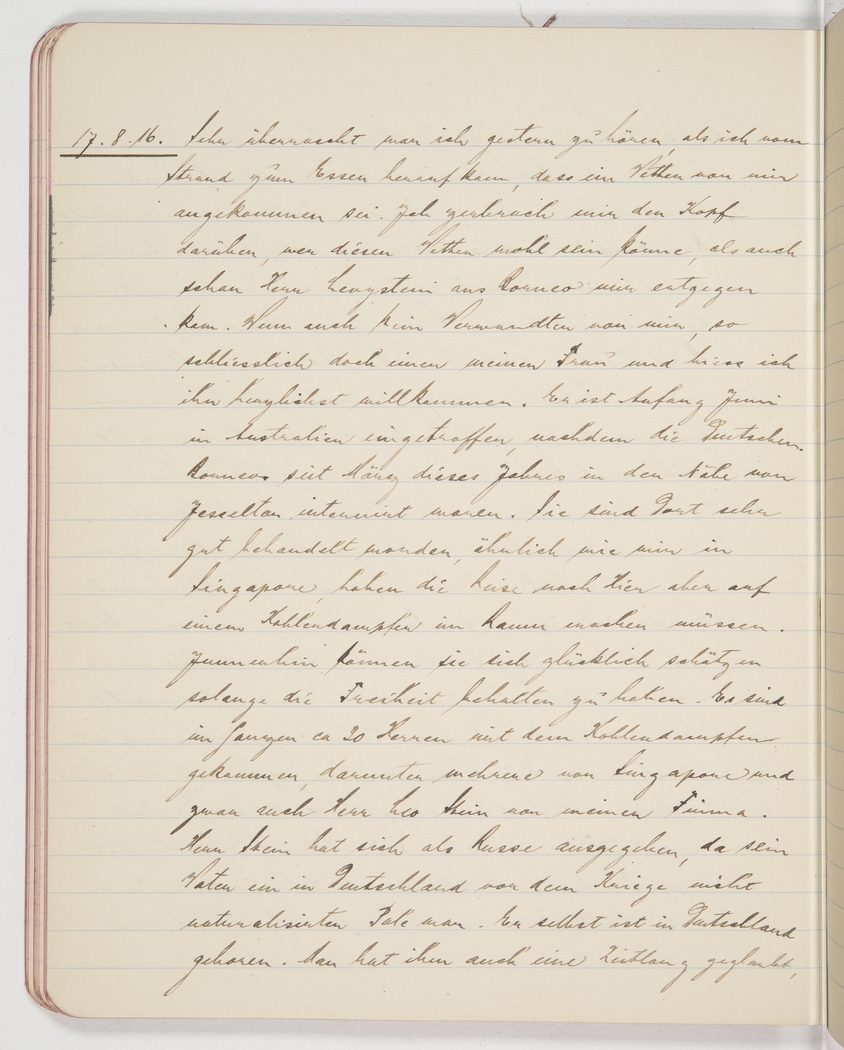 17.8.16. Sehr überrascht war ich gestern zu hören, als ich vom
Strand zum Essen heraufkam, dass ein Vetter von mir
angekommen sei. Ich zerbrach mir den Kopf
darüber, wer dieser Vetter wohl sein könne, als auch
schon Herr Levystein aus Borneo mir entgegen
kam. Wenn auch kein Verwandter von mir, so
schliesslich doch einer meiner Frau und hiess ich
ihn herzlichst willkommen. Er ist Anfang Juni
in Australien eingetroffen, nachdem die Deutschen
Borneos seit März dieses Jahres in der Nähe von
Jesselton interniert waren. Sie sind dort sehr
gut behandelt worden, ähnlich wie wir in
Singapore, haben die Reise nach Hier aber auf
einem Kohlendampfer im Raum machen müssen.
Immerhin können sie sich glücklich schätzen
solange die Freiheit behalten zu haben. Es sind
im Ganzen ca 30 Herren mit dem Kohlendampfer
gekommen, darunter mehrere von Singapore und
zwar auch Herr Leo Stein von meiner Firma.
Herr Stein hat sich als Russe ausgegeben, da sein
Vater ein in Deutschland vor dem Kriege nicht
naturalisierter Pole war. Er selbst ist in Deutschland
geboren. Man hat ihm auch eine Zeitlang geglaubt,